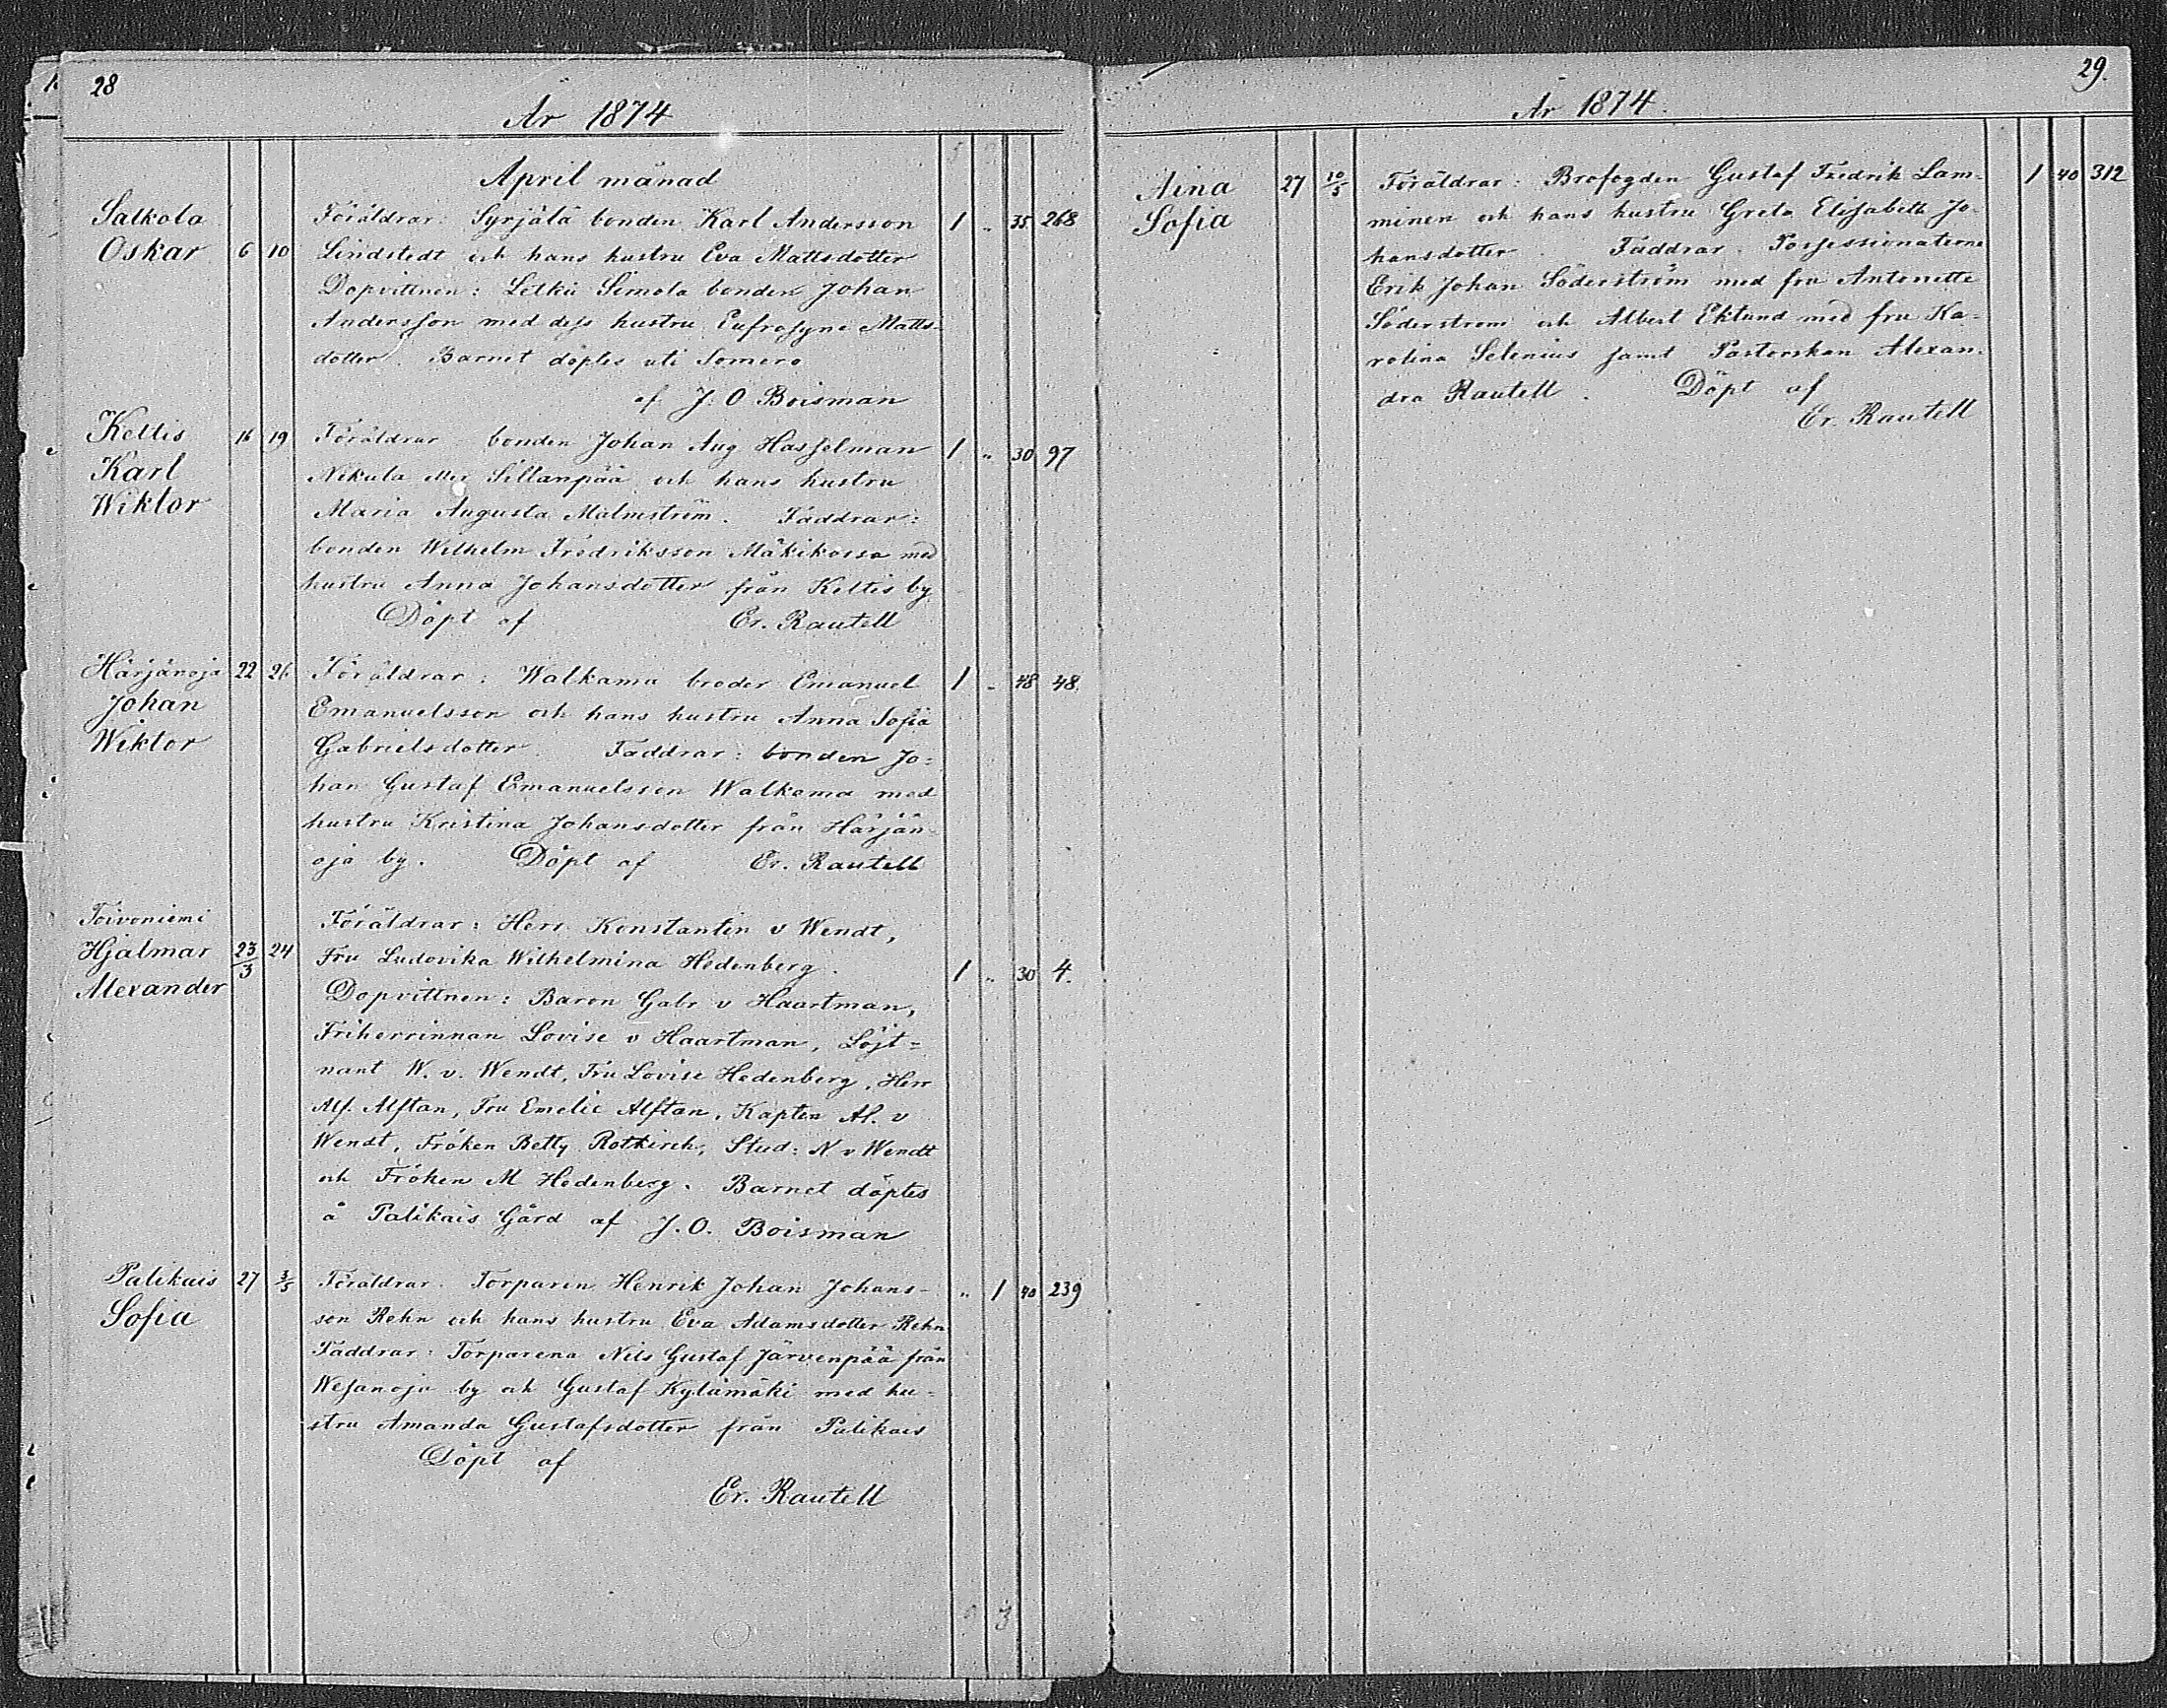 28
År 1874
April månad
Salkola
Oskar 6 10
Föräldrar: Syrjälä bonden Karl Andersson 1 „ 35 268
Lindstedt och hans hustru Eva Mattsdotter
Dopvittnen: Letku Simola bonden Johan
Andersson med dess hustru Eufrosyne Matts-
dotter. Barnet döptes uti Somero
af J. O. Boisman
Keltis 16 19
Karl
Wiktor
Föräldrar bonden Johan Aug Hasselman 1 „ 30 97
Nikula eller Sillanpää och hans hustru
Maria Augusta Malmström. Faddrar:
bonden Wilhelm Fredriksson Mäkikorra med
hustru Anna Johansdotter från Keltis by
Döpt af Er. Rautell
Härjänoja 22 26
Johan
Wiktor
Föräldrar: Walkama broder Emanuel 1 „ 48 48.
Emanuelsson och hans hustru Anna Sofia
Gabrielsdotter. Faddrar: bonden Jo-
han Gustaf Emanuelsson Walkama med
hustru Kristina Johansdotter från Härjän-
oja by. Döpt af Er. Rautell
Toivoniemi
Hjalmar 23/3 24
Alexander
Föräldrar: Herr Konstantin v Wendt,
Fru Ludovika Wilhelmina Hedenberg. 1 „ 30 4.
Dopvittnen: Baron Gabr v Haartman,
Friherrinnan Lovise v Haartman, Löjt-
nant W. v. Wendt, Fru Lovise Hedenberg, Herr
Alf. Alftan, Fru Emelie Alftan, Kapten Al. v
Wendt, Fröken Betty Rotkirch, Stud: N v Wendt
och Fröken M Hedenberg. Barnet döptes
å Palikais Gård af J. O. Boisman
Palikais 27 3/5
Sofia
Föräldrar. Torparen Henrik Johan Johans- „ 1 40 239
son Rehn och hans hustru Eva Adamsdotter Rehn
Faddrar: Torparena Nils Gustaf Järvenpää från
Wesanoja by och Gustaf Kylämäki med hu-
stru Amanda Gustafsdotter från Palikais
Döpt af
Er. Rautell
29.
År 1874.
Aina 27 10/5
Sofia
Föräldrar: Brofogden Gustaf Fredrik Lam- 1 40 312
minen och hans hustru Greta Elisabeth Jo-
hansdotter. Faddrar. Possessionaterne
Erik Johan Söderström med fru Antonette
Söderström och Albert Eklund med fru Ka-
rolina Selenius samt Pastorskan Alexan-
dra Rautell. Döpt af
Er. Rautell